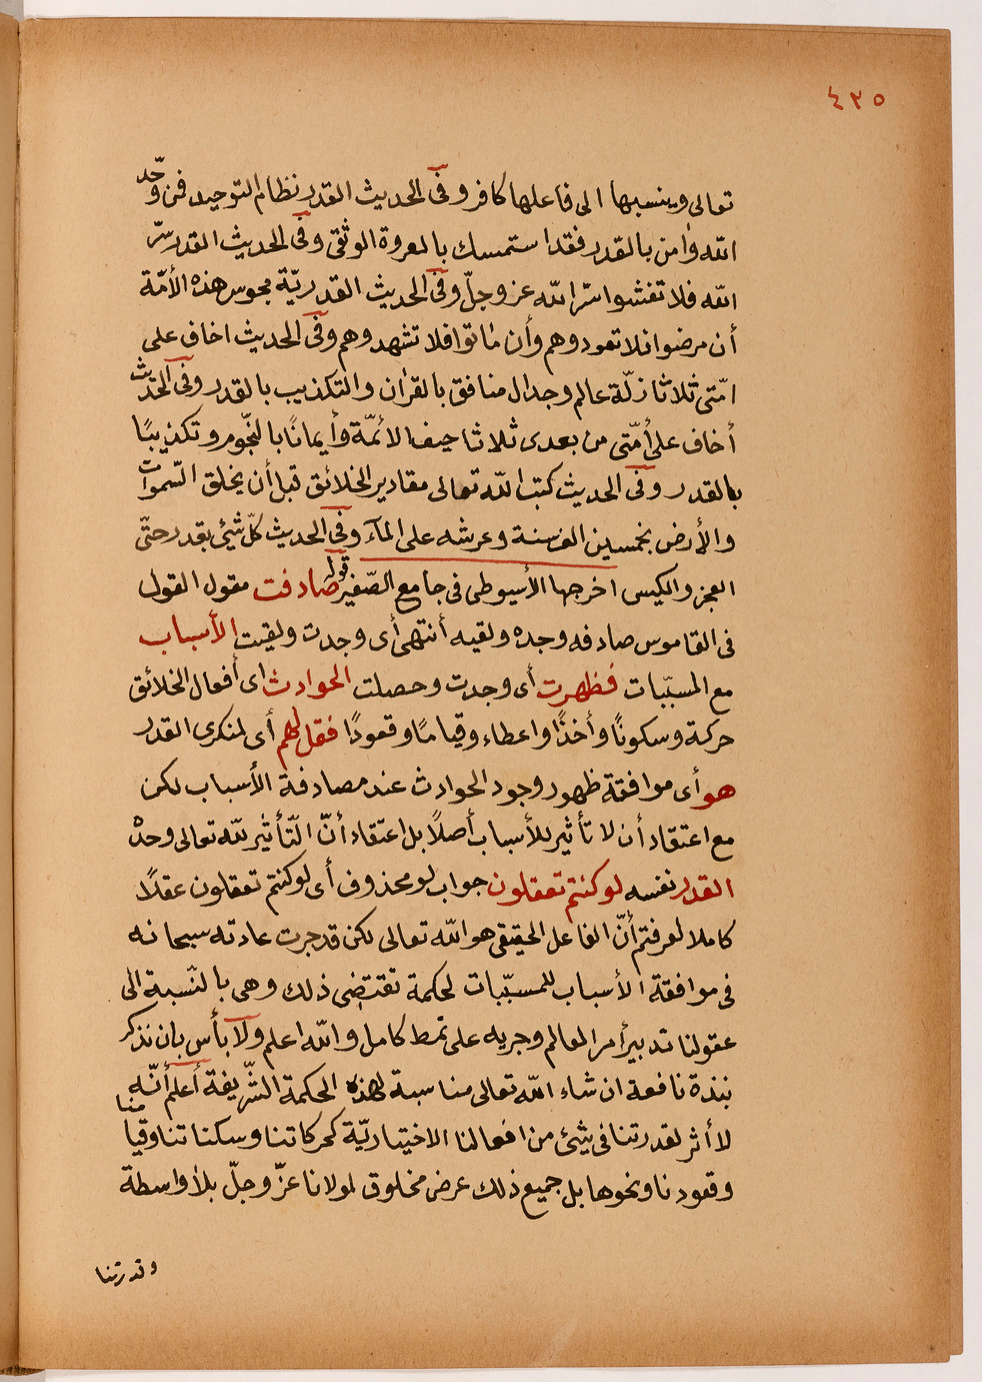 ٤٣٥
تعالى وينسبها الى فاعلها كافر وفى الحديث القدر نظام التوحيد فمن وحّد
الله وآمن بالقدر فقد استمسك بالعروة الوثقى وفى الحديث القدر سرّ
الله فلا تفشوا سرّ الله عز وجلّ وفى الحديث القدريّة مجوس هذه الأمّة
أن مرضوا فلا تعودوهم وأن ماتوا فلا تشهدوهم وفى الحديث اخاف على
امّتى ثلاثا زلّة عالم وجدال منافق بالقرآن والتكذيب بالقدر وفى الحديث
أخاف على أمّتى من بعدى ثلاثا حيف الائمّة وأيمانًا بالنّجوم وتكذيبًا
بالقدر وفى الحديث كتب الله تعالى مقادير الخلائق قبل أن يخلق السّموات
والأرض بخمسين الف سنة وعرشه على المآء وفى الحديث كلّ شيئ بقدر حتّى
العجز والكيس اخرجها الأسيوطى فى جامع الصّغير قوله صادفت مقول القول
فى القاموس صادفه وجده ولقيه أنتهى أى وجدت ولقيت الأسباب
مع المسبّبات فظهرت أى وجدت وحصلت الحوادث اى أفعال الخلائق
حركة وسكونًا وأخذًا واعطاء وقيامًا وقعودًا فقل لهم أى لمنكرى القدر
هو أى موافقة ظهور وجود الحوادث عند مصادفة الأسباب لكن
مع اعتقاد أن لا تأثير للأسباب أصلًا بل اعتقاد أنّ التّأثير لله تعالى وحده
القدر نفسه لو كنتم تعقلون جواب لو محذوف أى لو كنتم تعقلون عقلًا
كاملا لعرفتم أنّ الفاعل الحقيقى هو الله تعالى لكن قد جرت عادته سبحانه
فى موافقة الأسباب للمسبّبات لحكمة تقتضى ذلك وهى بالنّسبة الى
عقولنا تدبير أمر العالم وجريه على نمط كامل والله اعلم ولا بأس بان نذكر
نبذة نافعة ان شاء الله تعالى مناسبة لهذه الحكمة الشّريفة أعلم أنّه
لا أثر لقدرتنا فى شيئ من افعالنا الاختياريّة كحركاتنا وسكناتنا وقيامنا
وقعودنا ونحوها بل جميع ذلك عرض مخلوق لمولانا عزّ وجلّ بلا واسطة
وقدرتنا